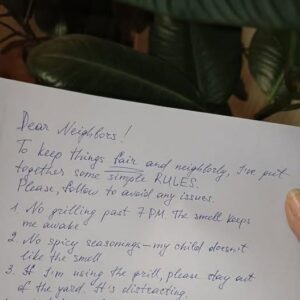 Dear Neighbors!
To keep things fair and neighborly, I've put
together some simple RULES.
Please, follow to avoid any issues.
1. No grilling past 7 PM. The smell keeps
me awake.
2. No spicy seasonings—my child doesn't
like the smell.
3. If I'm using the grill, please stay out
of the yard. It's distracting.